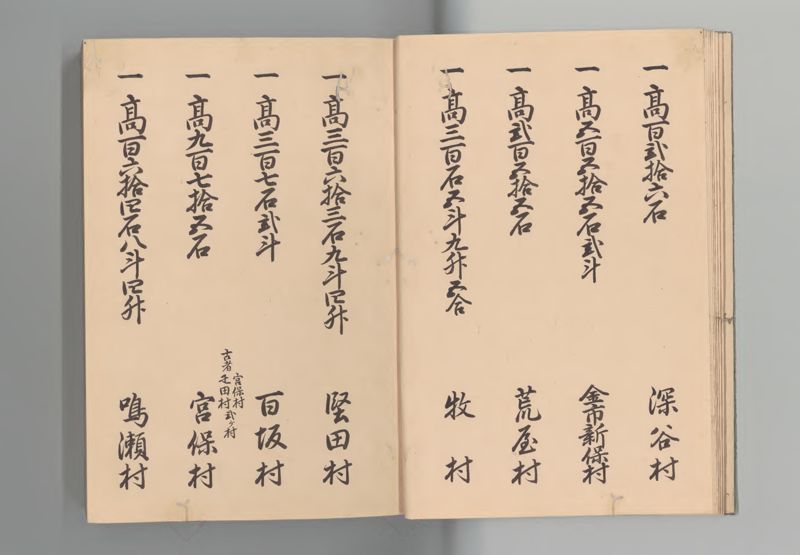 一高百弐拾六石 深谷村
一高五百五拾五石弐斗 金市新保村
一高弐百五拾五石 荒屋村
一高三百石五斗九升五合 牧村
一高三百六拾三石九斗四升 堅田村
一高三百七石弐斗 百坂村
一高九百七拾五石 宮保村
古者 宮保村
疋田村 弐ケ村
一高百六拾四石八斗四升 鳴瀬村